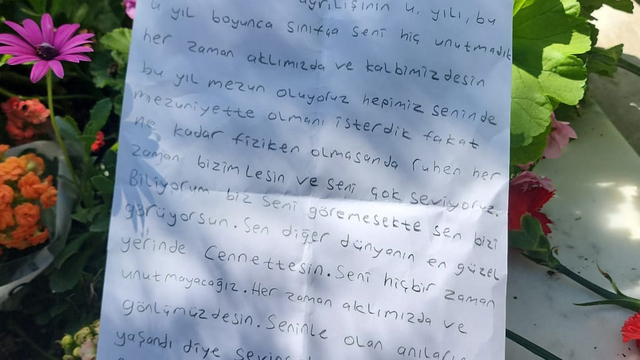 ayrılışının u. yılı, bu
u yıl boyunca sınıfça seni hiç unutmadık
her zaman aklımızda ve kalbimizdesin
bu yıl mezun oluyoruz hepimiz seninde
mezuniyette olmanı isterdik fakat
ne kadar fiziken olmasanda ruhen her
zaman bizimlesin ve seni çok seviyoruz.
Biliyorum biz seni göremesekte sen bizi
görüyorsun. Sen diğer dünyanın en güzel
yerinde Cennettesin. Seni hiçbir zaman
unutmayacağız. Her zaman aklımızda ve
gönlümüzdesin. Seninle olan anıların
yaşandı diye